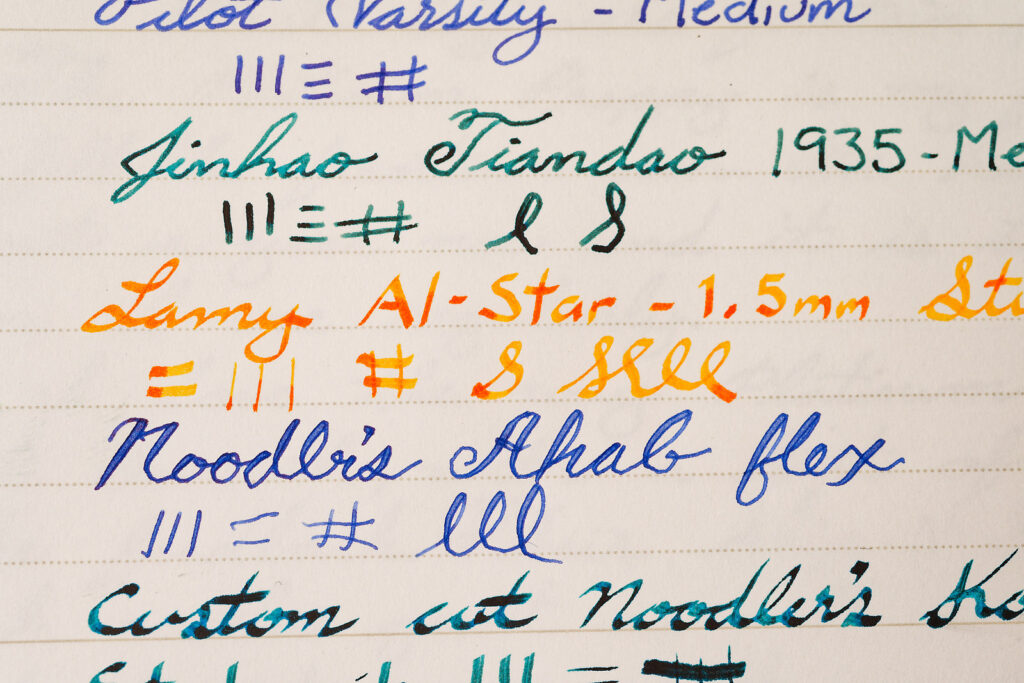 Pilot Varsity - Medium
||| ≡ #
Jinhao Tiandao 1935 - Me
||| ≡ # l S
Lamy Al-Star - 1.5mm
= ||| # S Slll
Noodler's Ahab flex
||| = # lll
Custom cut Noodler's
||| = #